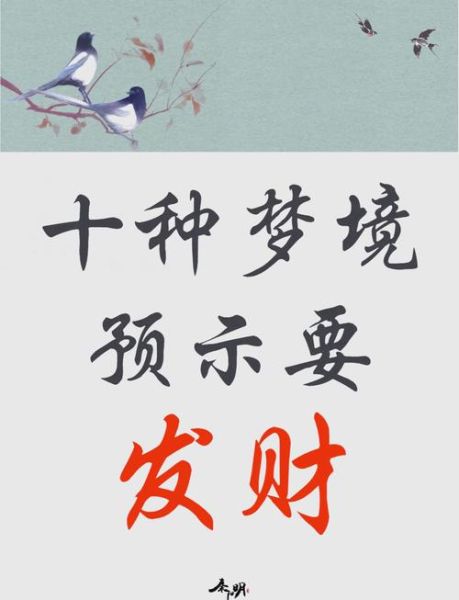 十种梦境
预示要
发财